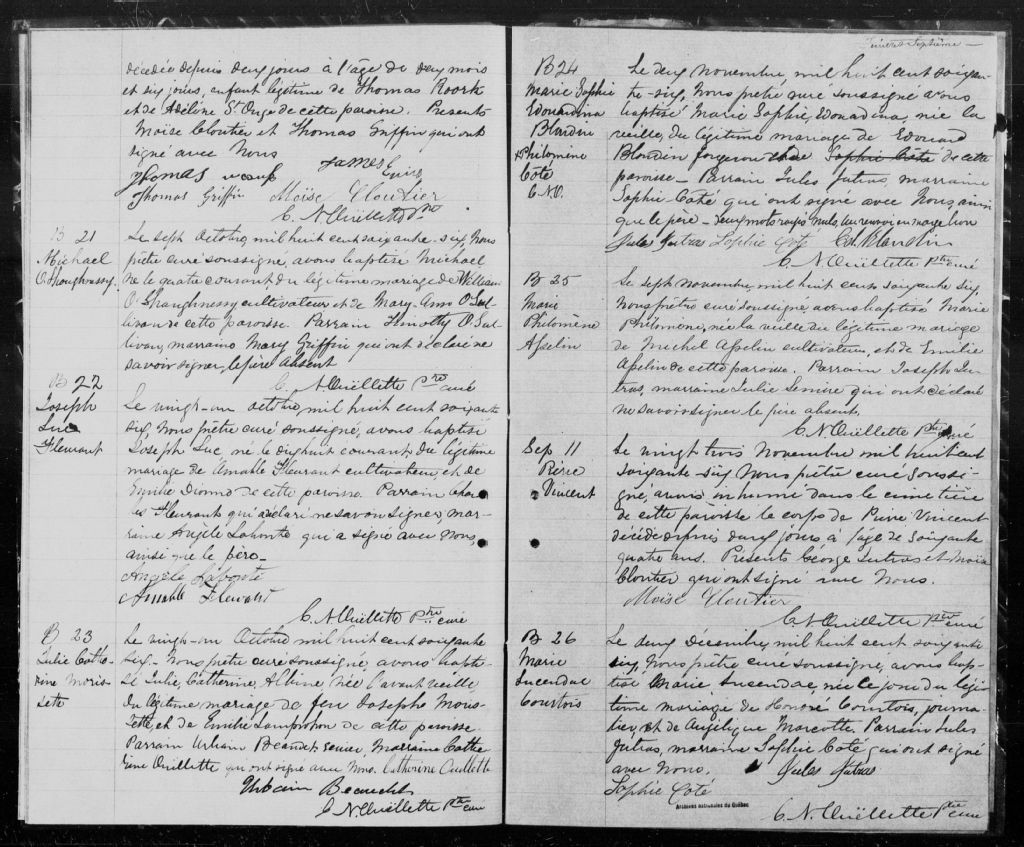 décédée depuis deux jours à l'âge de deux mois
et six jours, enfant légitime de Thomas Roork
et de Adéline St Onge de cette paroisse. Présents
Moïse Cloutier et Thomas Griffin qui ont
signé avec Nous
Thomas
James
Thomas Griffin Moïse Cloutier
C. N. Ouëllette Ptre
B 21
Michael
O'Shoughnessy.
Le sept Octobre, mil huit cent soixante-six, Nous
prêtre curé soussigné, avons baptisé Michael
né le quatre courant du légitime mariage de William
O'Shaughnessy cultivateur et de Mary-Ann O'Sul-
livan de cette paroisse. Parrain Timothy O'Sul-
livan, marraine Mary Griffin qui ont déclaré ne
savoir signer, le père absent
C. N. Ouëllette Ptre curé
B 22
Joseph
Luc
Fleurant
Le vingt-un octobre mil huit cent soixante
six, Nous prêtre curé soussigné, avons baptisé
Joseph Luc, né le dixhuit courant du légitime
mariage de Amable Fleurant cultivateur, et de
Emilie Dionne de cette paroisse. Parrain Char-
les Fleurant qui a déclaré ne savoir signer, mar-
raine Angèle Labonté qui a signé avec Nous,
ainsi que le père_
Angèle Labonté
Amable Fleurant
C. N. Ouëllette Ptre curé
B 23
Julie Cathe-
rine Moris-
sette
Le vingt-un Octobre mil huit cent soixante
six_ Nous prêtre curé soussigné, avons bapti-
sé Julie, Catherine, Albine née l'avant veille
du légitime mariage de feu Josephe Moris-
sette, et de Emilie Lamprohon de cette paroisse
Parrain Urbain Beaudet, Marraine Cathe
rine Ouillette qui ont signé avec Nous. Catherine Ouellette
Urbain Beaudet
C. N. Ouëllette Ptre curé
B 24
Marie Sophie
Edouardina
Blondin
+Philomène
Côté
C. N. O.
Le deux Novembre, mil huit cent soixan-
te-six, Nous prêtre curé soussigné avons
baptisé Marie Sophie, Edouadina, née la
veille, du légitime mariage de Edouard
Blondin forgeron et de Sophie Côté de cette
paroisse_ Parrain Jules Jutras, marraine
Sophie Côté qui ont signé avec Nous, ainsi
que le père_ deux mots rayés nuls, un renvoi en marge bon
Jules Jutras Sophie Coté Ed. Blondin
C. N. Ouëllette Ptre curé
B 25
Marie
Philomène
Asselin
Le sept novembre, mil huit cent soixante six,
Nous prêtre curé soussigné, avons baptisé Marie
Philomène, née la veille du légitime mariage
de Michel Asselin cultivateur, et de Emilie
Asselin de cette paroisse. Parrain Joseph Ju-
tras, marraine Julie Lemire qui ont déclaré
ne savoir signer le père absent.
C. N. Ouëllette Ptre curé
Sep 11
Pierre
Vincent
Le vingt trois Novembre mil huit cent
soixante-six, Nous prêtre curé sous-si
gné, avons inhumé dans le cimetière
de cette paroisse le corps de Pierre Vincent
décédé depuis deux jours à l'age de soixante
quatre ans. Présents George Jutras et Moïse
Cloutier qui ont signé avec Nous.
Moïse Cloutier
C. N. Ouëllette Ptre curé
B 26
Marie
Lucendae
Courtois
Le deux Décembre, mil huit cent soixante
six, Nous prêtre curé soussigné, avons bap-
tisé Marie Lucendae, née le jour du légi-
time mariage de Honoré Courtois, journa-
lier, et de Angélique Marcotte. Parrain Jules
Jutras, marraine Sophie Coté qui ont signé
avec Nous. Jules Jutras
Sophie Coté
Archives nationales du Québec
C. N. Ouëllette Ptre curé